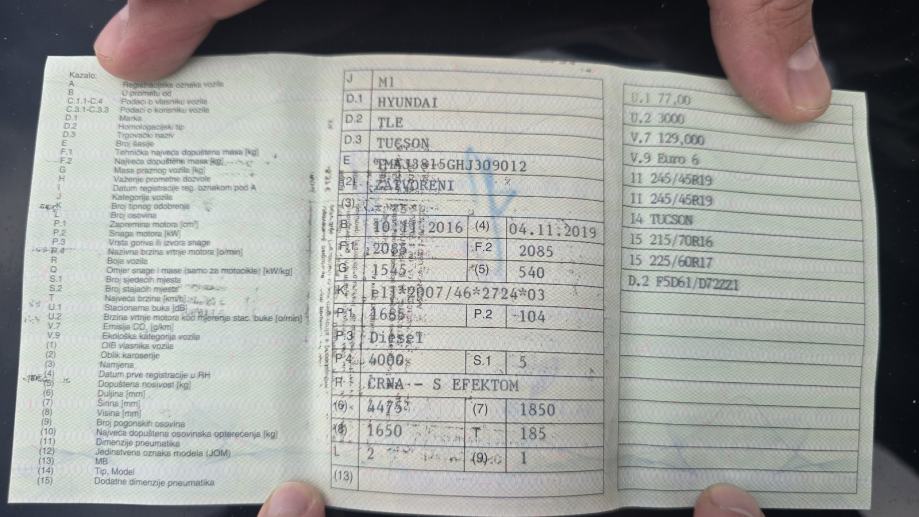 Kazalo:
A Registracijska oznaka vozila
B U prometu od
C.1.1-C.4 Podaci o vlasniku vozila
C.3.1-C.3.3 Podaci o korisniku vozila
D.1 Marka
D.2 Homologacijski tip
D.3 Trgovački naziv
E Broj šasije
F.1 Tehnička najveća dopuštena masa [kg]
F.2 Najveća dopuštena masa [kg]
G Masa praznog vozila [kg]
H Važenje prometne dozvole
I Datum registracije reg. oznakom pod A
J Kategorija vozila
K Broj tipnog odobrenja
L Broj osovina
P.1 Zapremina motora [cm³]
P.2 Snaga motora [kW]
P.3 Vrsta goriva ili izvora snage
P.4 Nazivna brzina vrtnje motora [o/min]
R Boja vozila
Q Omjer snage i mase (samo za motocikle) [kW/kg]
S.1 Broj sjedećih mjesta
S.2 Broj stajaćih mjesta
T Najveća brzina [km/h]
U.1 Stacionarna buka [dB]
U.2 Brzina vrtnje motora kod mjerenja stac. buke [o/min]
V.7 Emisija CO₂ [g/km]
V.9 Ekološka kategorija vozila
(1) OIB vlasnika vozila
(2) Oblik karoserije
(3) Namjena
(4) Datum prve registracije u RH
(5) Dopuštena nosivost [kg]
(6) Duljina [mm]
(7) Širina [mm]
(8) Visina [mm]
(9) Broj pogonskih osovina
(10) Najveća dopuštena osovinska opterećenja [kg]
(11) Dimenzije pneumatika
(12) Jedinstvena oznaka modela (JOM)
(13) MB
(14) Tip, Model
(15) Dodatne dimenzije pneumatika
J M1
D.1 HYUNDAI
D.2 TLE
D.3 TUCSON
E TMAJ3815GHJ309012
(2) ZATVORENI
(3)
B 10.11.2016 (4) 04.11.2019
F.1 2085 F.2 2085
G 1545 (5) 540
K e11*2007/46*2724*03
P.1 1685 P.2 104
P.3 Diesel
P.4 4000 S.1 5
R CRNA - S EFEKTOM
(6) 4475 (7) 1850
(8) 1650 T 185
L 2 (9) 1
(13)
U.1 77,00
U.2 3000
V.7 129,000
V.9 Euro 6
11 245/45R19
11 245/45R19
14 TUCSON
15 215/70R16
15 225/60R17
D.2 F5D61/D72Z1